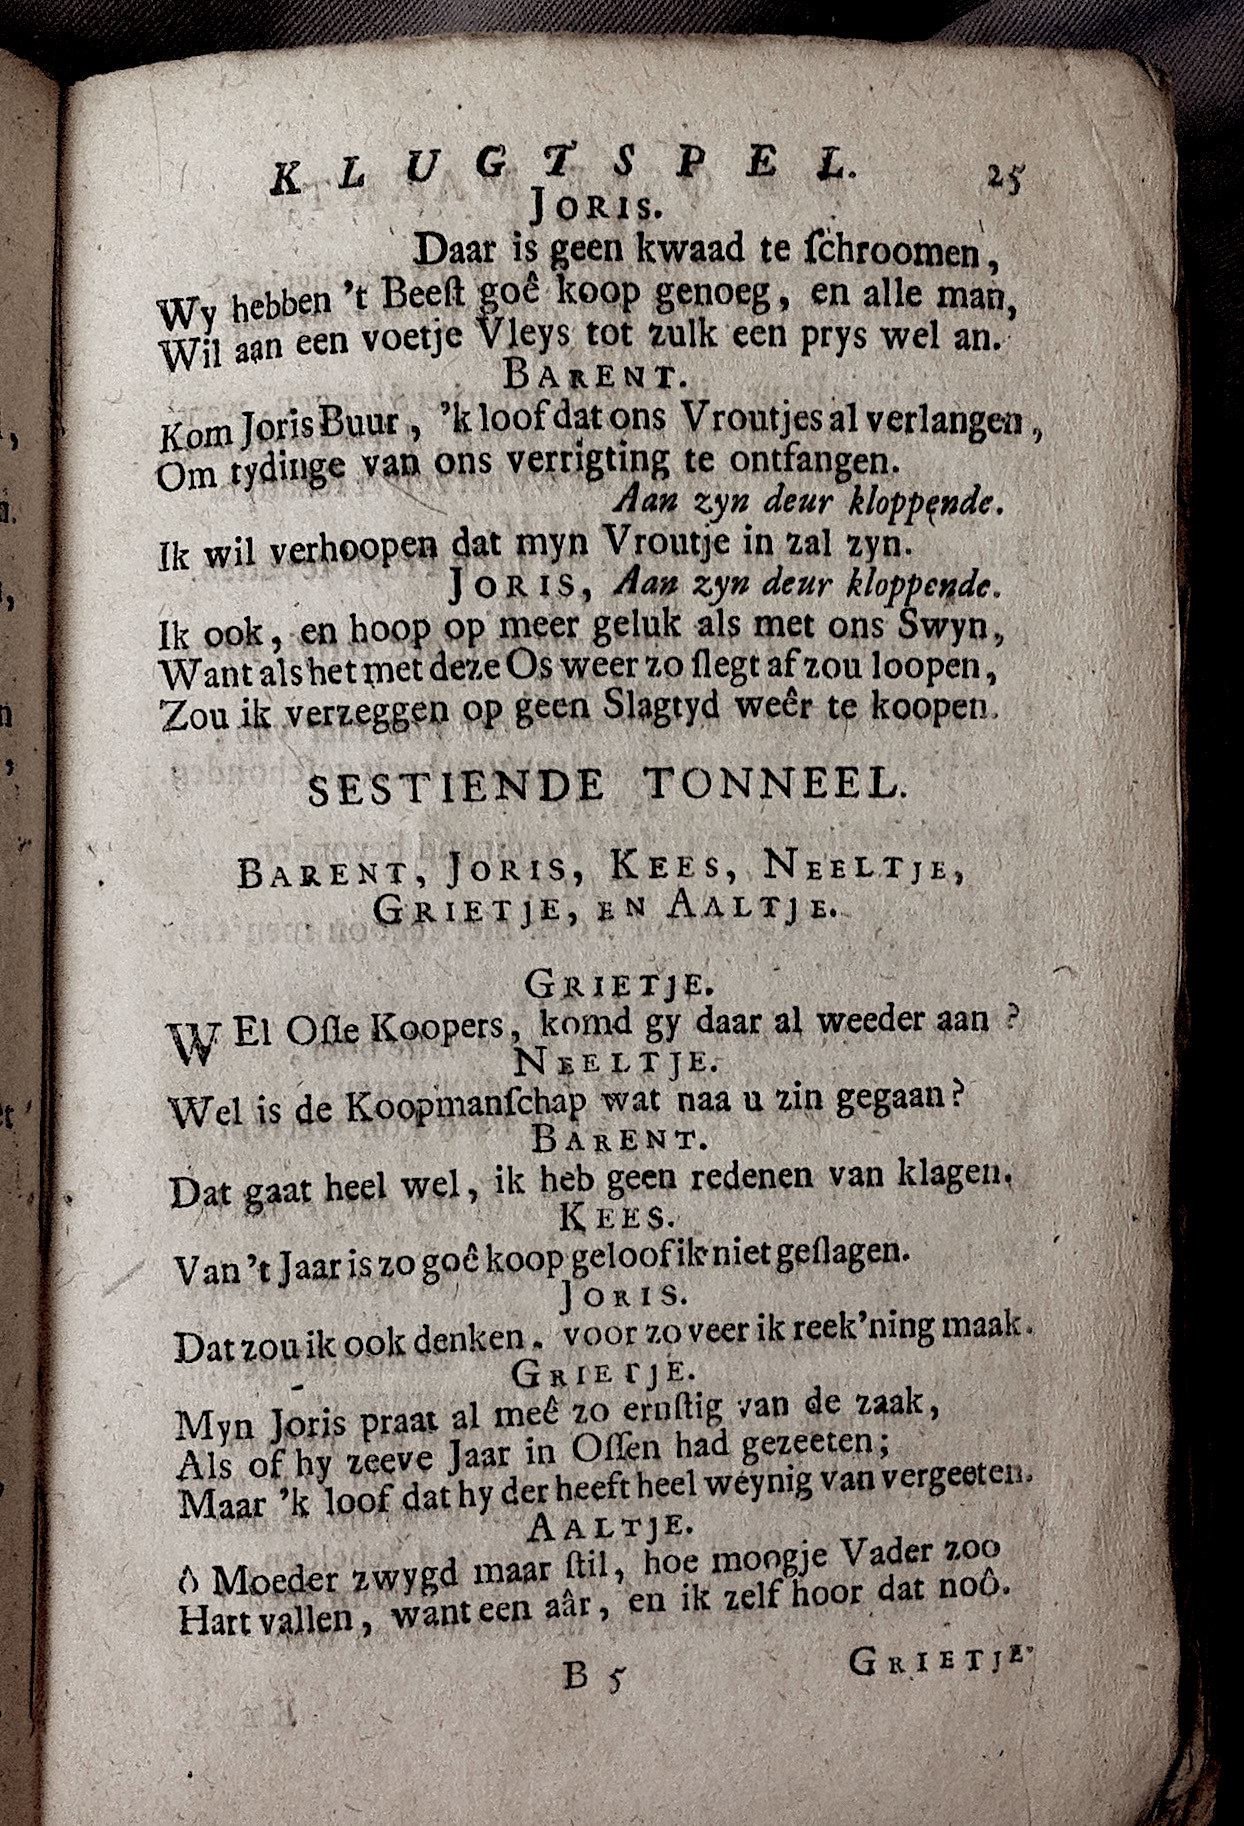 KLUGTSPEL. 25
JORIS.
Daar is geen kwaad te ſchroomen,
Wy hebben 't Beeſt goê koop genoeg, en alle man,
Wil aan een voetje Vleys tot zulk een prys wel an.
BARENT.
Kom Joris Buur, 'k loof dat ons Vroutjes al verlangen,
Om tydinge van ons verrigting te ontfangen.
Aan zyn deur kloppende.
Ik wil verhoopen dat myn Vroutje in zal zyn.
JORIS, Aan zyn deur kloppende.
Ik ook, en hoop op meer geluk als met ons Swyn,
Want als het met deze Os weer zo ſlegt af zou loopen,
Zou ik verzeggen op geen Slagtyd weêr te koopen.
SESTIENDE TONNEEL.
BARENT, JORIS, KEES, NEELTJE,
GRIETJE, EN AALTJE.
GRIETJE.
WEl Oſſe Koopers, komd gy daar al weeder aan?
NEELTJE.
Wel is de Koopmanſchap wat naa u zin gegaan?
BARENT.
Dat gaat heel wel, ik heb geen redenen van klagen.
KEES.
Van 't Jaar is zo goê koop geloof ik niet geſlagen.
JORIS.
Dat zou ik ook denken. voor zo veer ik reek'ning maak.
GRIETJE.
Myn Joris praat al meê zo ernſtig van de zaak,
Als of hy zeeve Jaar in Oſſen had gezeeten;
Maar 'k loof dat hy der heeft heel weynig van vergeeten.
AALTJE.
ô Moeder zwygd maar ſtil, hoe moogje Vader zoo
Hart vallen, want een aâr, en ik zelf hoor dat noô.
B 5 GRIETJE.